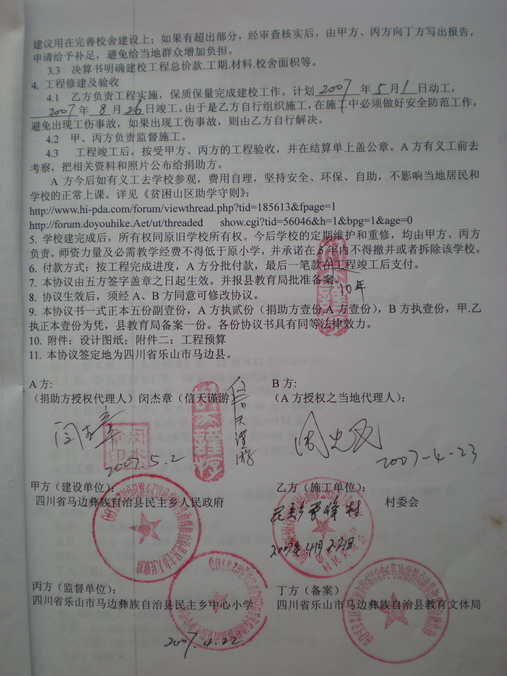 建议用在完善校舍建设上；如果有超出部分，经审查核实后，由甲方、丙方向丁方写出报告，
申请给予补足，避免给当地群众增加负担。
3.3 决算书明确建校工程总价款.工期.材料.校舍面积等。
4. 工程修建及验收
4.1 乙方负责工程实施，保质保量完成建校工作。计划 2007 年 5 月 1 日动工，
2007 年 8 月 26 日竣工。由于是乙方自行组织施工，在施工中必须做好安全防范工作，
避免出现工伤事故，如果出现工伤事故，则由乙方自行解决。
4.2 甲、丙方负责监督施工。
4.3 工程竣工后，按受甲方、丙方的工程验收，并在结算单上盖公章。A 方有义工前去
考察，把相关资料和照片公布给捐助方。
A 方今后如有义工去学校参观，费用自理，坚持安全、环保、自助，不影响当地居民和
学校的正常上课。详见《贫困山区助学守则》：
http://www.hi-pda.com/forum/viewthread.php?tid=185613&fpage=1
http://forum.doyouhike.Aet/ut/threaded show.cgi?tid=56046&h=1&bpg=1&age=0
5. 学校建完成后，所有权同原旧学校所有权。今后学校的定期维护和重修，均由甲方、丙方
负责。师资力量及必需教学经费不得低于原小学，并承诺在 年内不得撤并或者拆除该学校。
10年
6. 付款方式：按工程完成进度，A 方分批付款，最后一笔款在工程竣工后支付。
7. 本协议由五方签字盖章之日起生效。并报县教育局批准备案。
8. 协议生效后，须经 A、B 方同意可修改协议。
9. 本协议书一式正本五份副壹份，A 方执贰份（捐助方壹份,A 方壹份），B 方执壹份，甲.乙
执正本壹份为凭，县教育局备案一份。各份协议书具有同等法律效力。
10. 附件：设计图纸；附件二：工程预算
11. 本协议签定地为四川省乐山市马边县。
A 方：
（捐助方授权代理人）闵杰章（信天谨游
信天谨游
闵杰章
2007.5.2
B 方：
（A 方授权之当地代理人）：
2007-4-23
甲方（建设单位）：
四川省马边彝族自治县民主乡人民政府
乙方（施工单位）：
村委会
2007年4月23日
丙方（监督单位）：
四川省乐山市马边彝族自治县民主乡中心小学
2007.4.22
丁方（备案）
四川省乐山市马边彝族自治县教育文体局